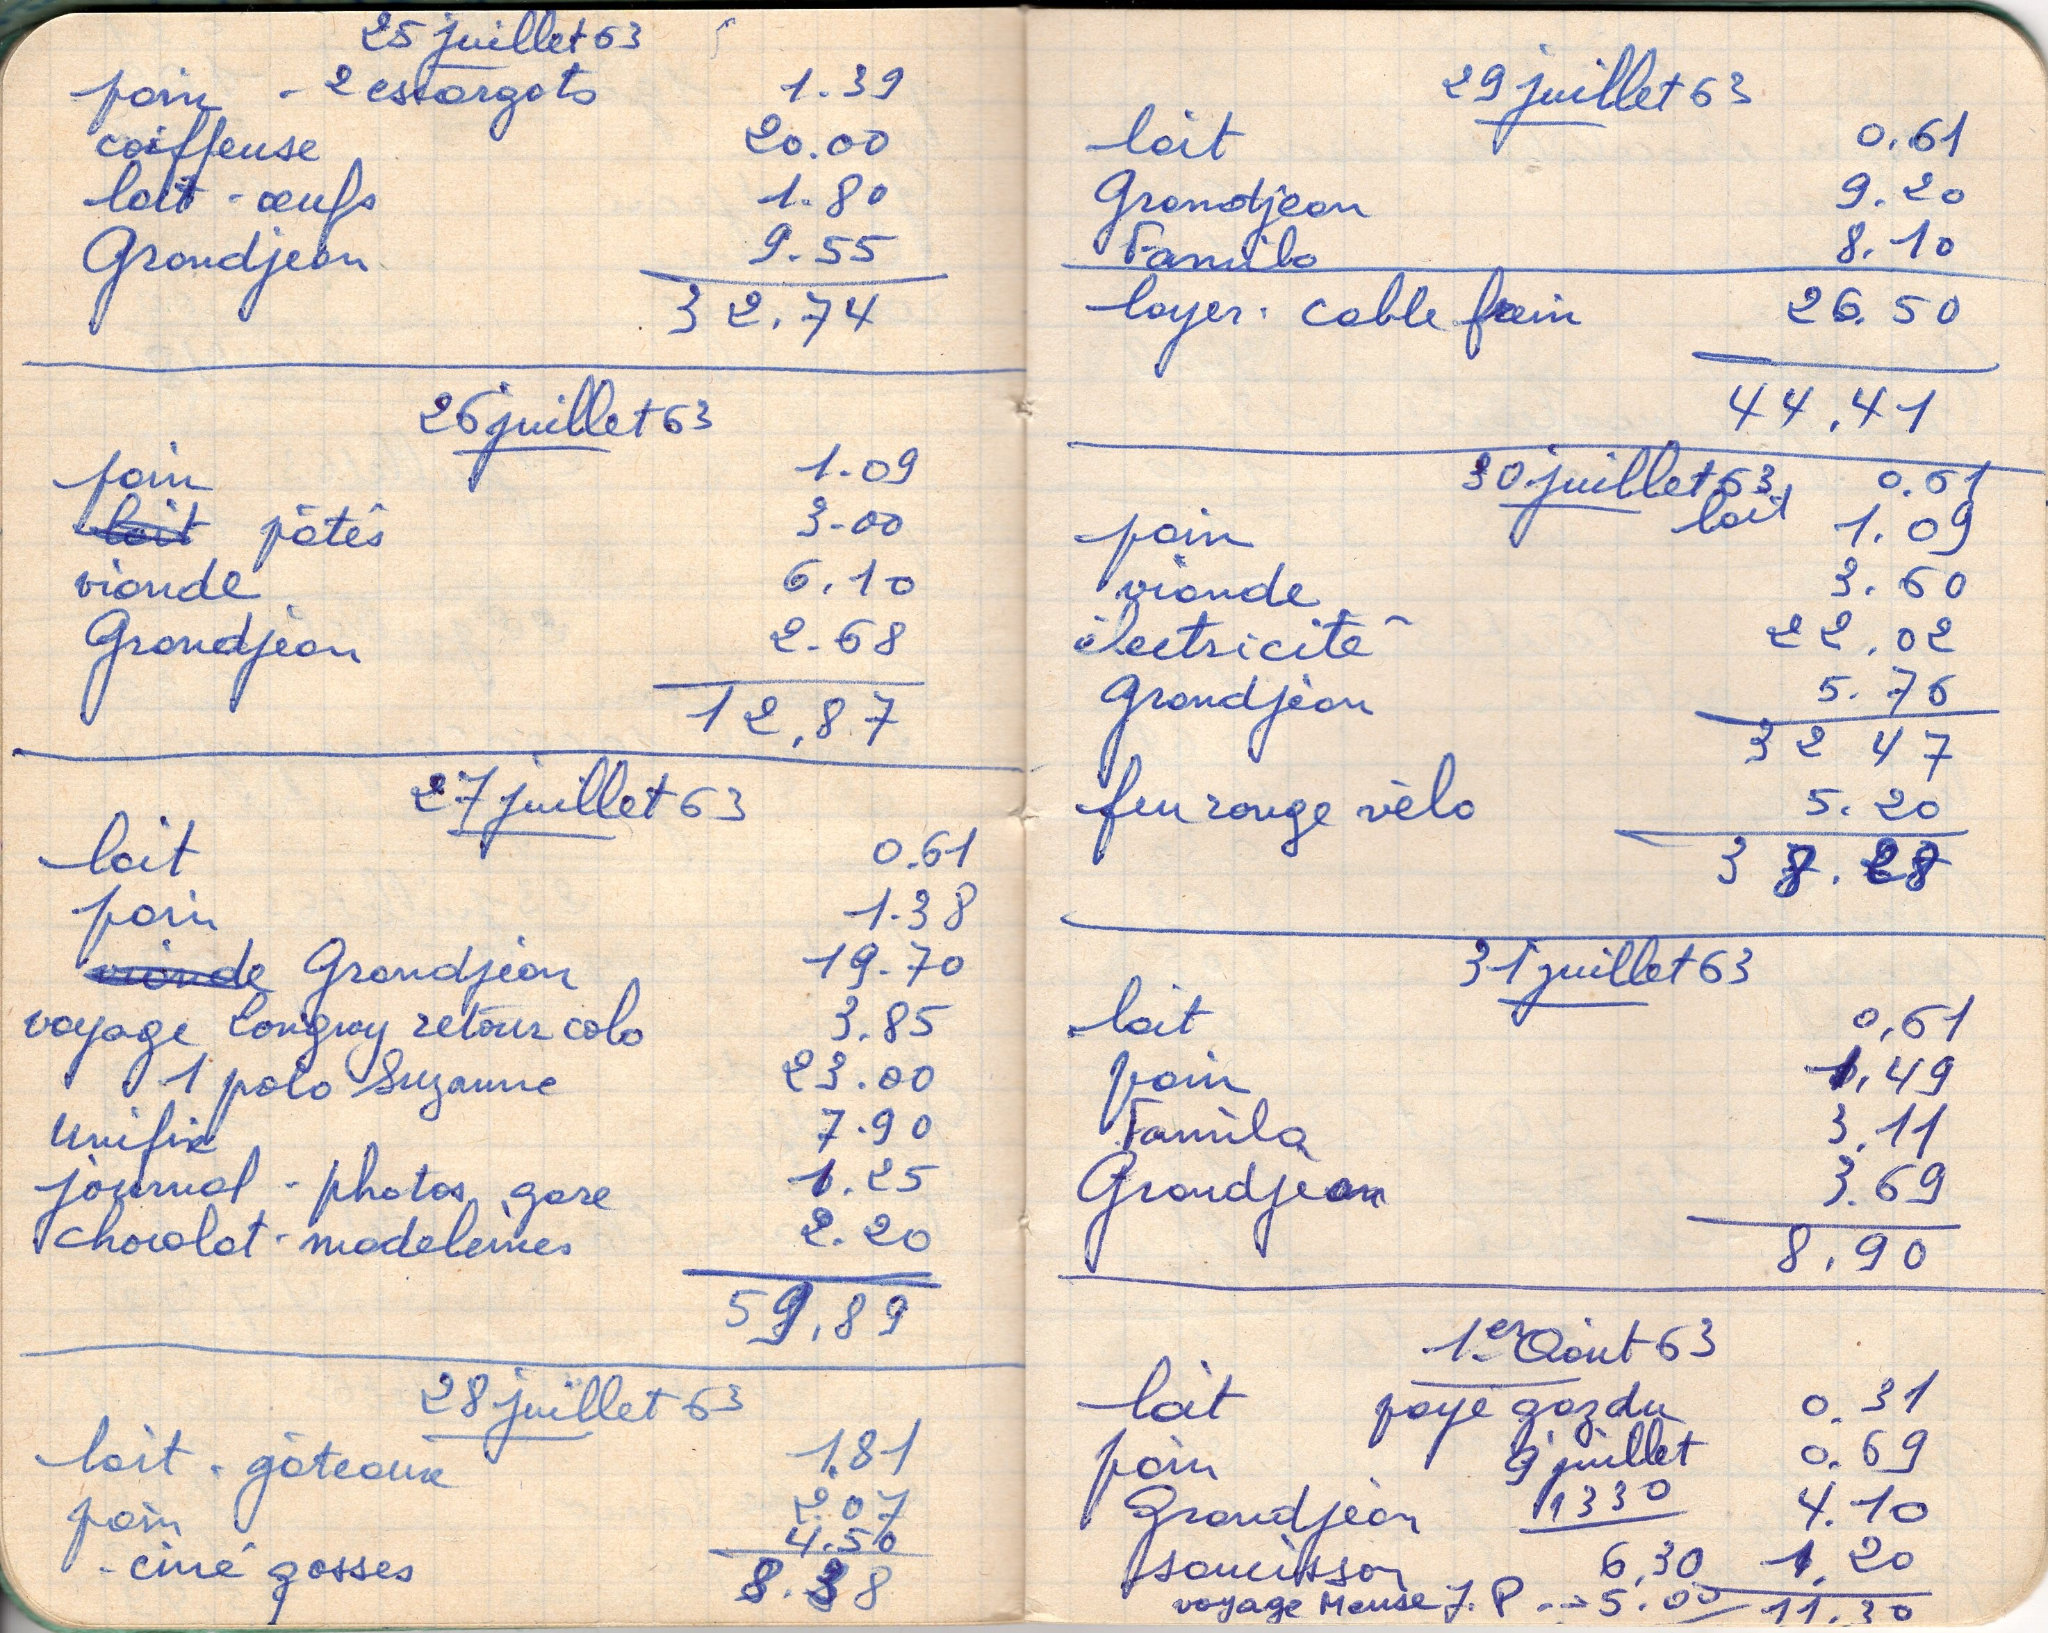 25 juillet 63
pain - 2 escargots 1.39
coiffeuse 20.00
lait - œufs 1.80
Grandjean 9.55
32.74
26 juillet 63
pain 1.09
lait pâtés 3.00
viande 6.10
Grandjean 2.68
12,87
27 juillet 63
lait 0.61
pain 1.38
viande Grandjean 19.70
voyage Longwy retour colo 3.85
1 polo Suzanne 23.00
Unifix 7.90
journal - photos gare 1.25
chocolat - madeleines 2.20
59,89
28 juillet 63
lait - gâteaux 1.81
pain 2.07
- ciné gosses 4.50
8.38
29 juillet 63
lait 0.61
Grandjean 9.20
Famila 8.10
loyer. cable frein 26.50
44,41
30 juillet 63 0.61
lait
pain 1.09
viande 3.60
électricité 22.02
Grandjean 5.76
32 47
feu rouge vélo 5.20
38.28
31 juillet 63
lait 0,61
pain 1,49
Famila 3.11
Grandjean 3.69
8,90
1er Août 63
lait paye gaz du 0.31
pain 9 juillet 0.69
Grandjean 1330 4.10
saucisson 6,30 1,20
voyage Meuse J.P --> 5.00 11.30